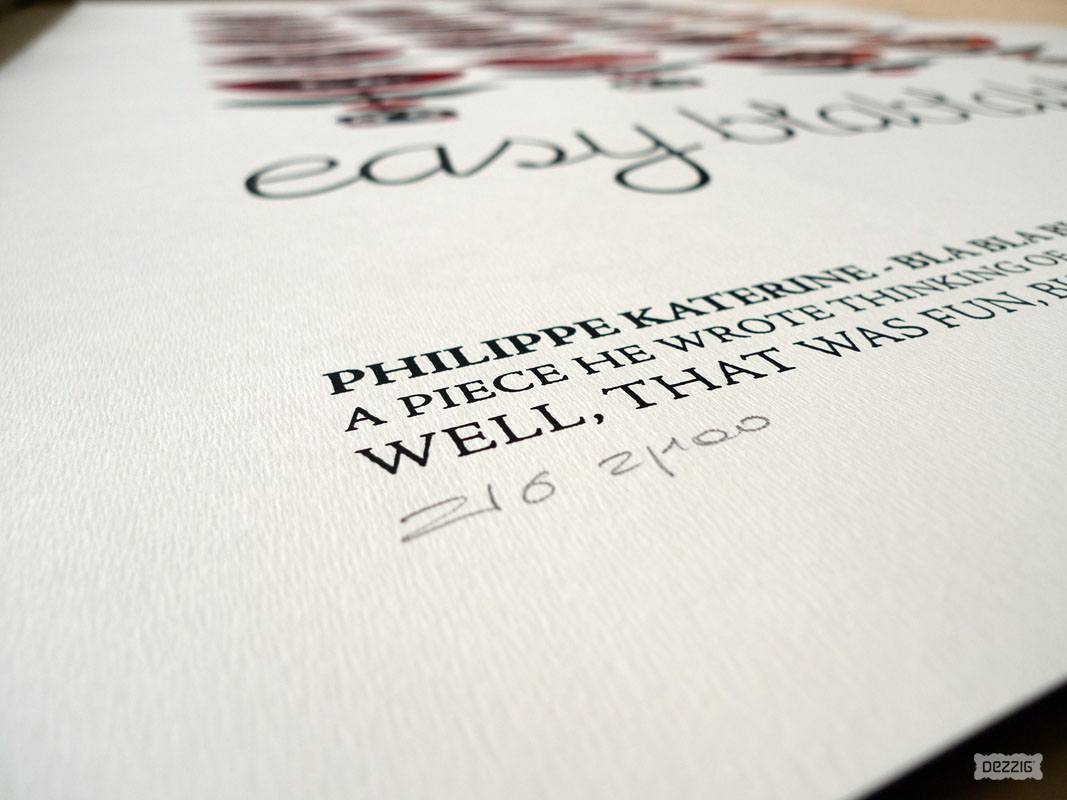 easy blablabla
PHILIPPE KATERINE - BLA BLA
A PIECE HE WROTE THINKING OF
WELL, THAT WAS FUN,
216
DEZZIG